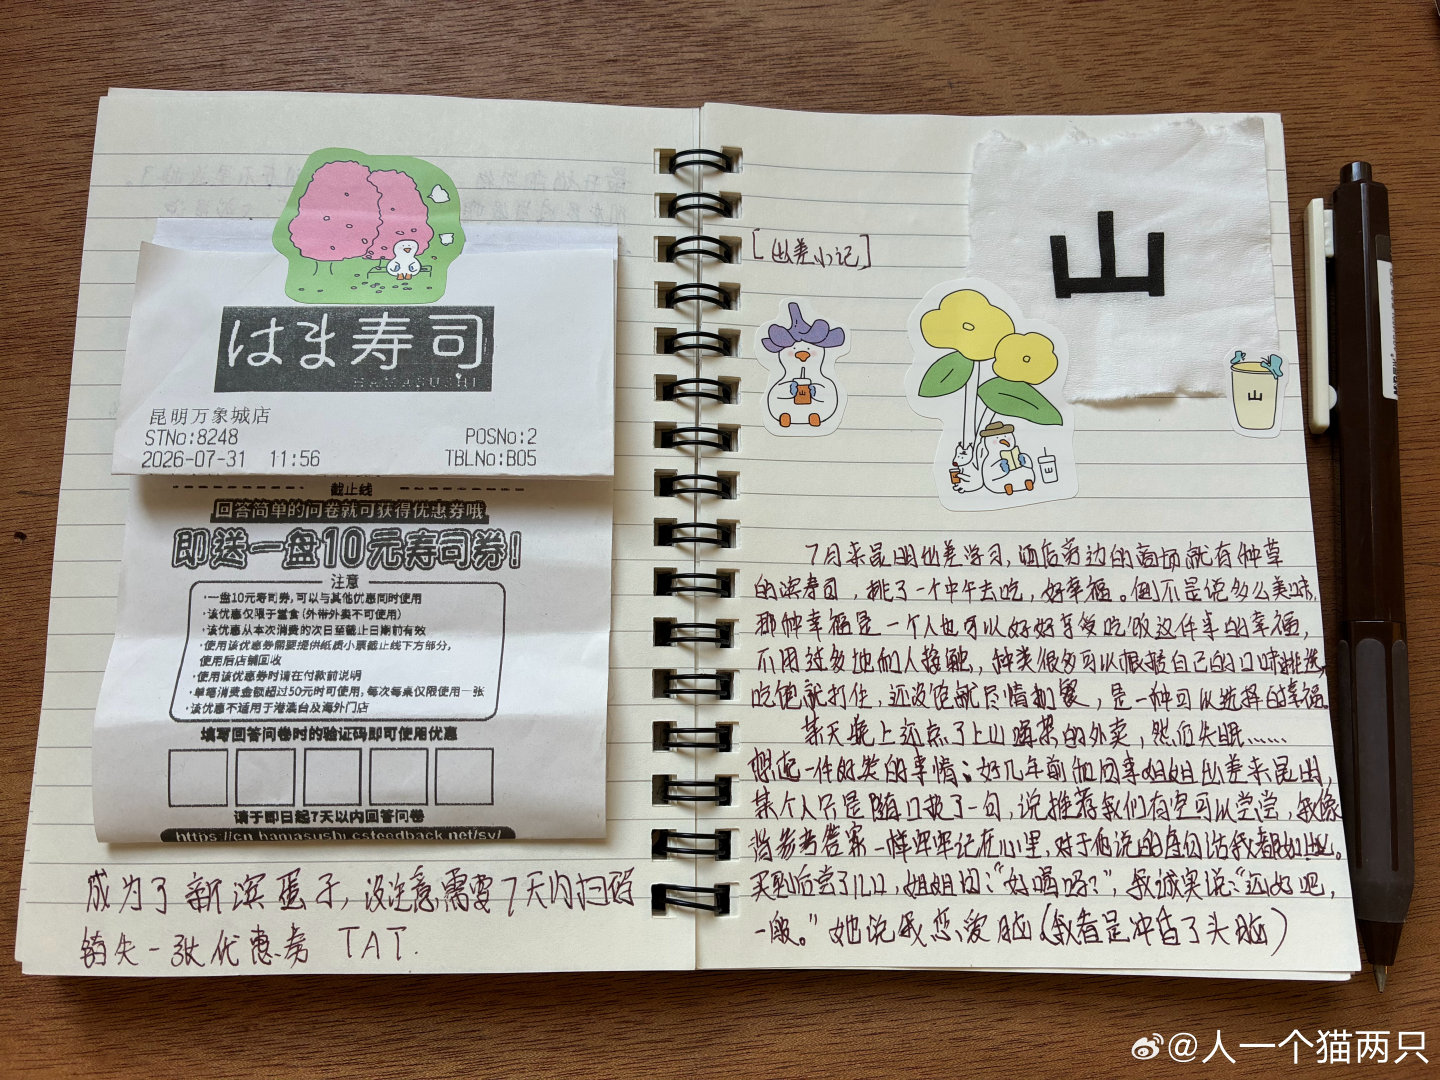 はま寿司
HAMASUSHI
昆明万象城店
STNo:8248 POSNo:2
2026-07-31 11:56 TBLNo:B05
截止线
回答简单的问卷就可获得优惠券哦
即送一盘10元寿司券!
注意
·一盘10元寿司券,可以与其他优惠同时使用
·该优惠仅限于堂食(外带外卖不可使用)
·该优惠从本次消费的次日至截止日期前有效
·使用该优惠券需要提供纸质小票截止线下方部分,
使用后店铺回收
·使用该优惠券时请在付款前说明
·单笔消费金额超过50元时可使用,每次每桌仅限使用一张
·该优惠不适用于港澳台及海外门店
填写回答问卷时的验证码即可使用优惠
请于即日起7天以内回答问卷
https://cn.hamasushi.csfeedback.net/sv/
成为了新滨蛋子,没注意需要7天内扫码
错失一张优惠券 TAT.
[出差小记]
山
山
山
山
7月来昆明出差学习,酒店旁边的商场就有种草
的滨寿司,挑了一个中午去吃,好幸福。倒不是说多么美味,
那种幸福是一个人也可以好好享受吃饭这件事的幸福,
不用过多地和人接触,种类很多可以根据自己的口味挑选,
吃饱就打住,还没饱就尽情加餐,是一种可以选择的幸福。
某天晚上还点了上山喝茶的外卖,然后失眠……
想起一件好笑的事情:好几年前和同事姐姐出差来昆明,
某个人只是随口提了一句,说推荐我们有空可以尝尝,我像
背参考答案一样牢牢记在心里,对于他说的每句话我都如此。
买到后尝了几口,姐姐问:“好喝吗?”,我诚实说:“还好吧,
一般。”她说我恋爱脑(我看是冲昏了头脑)
@人一个猫两只